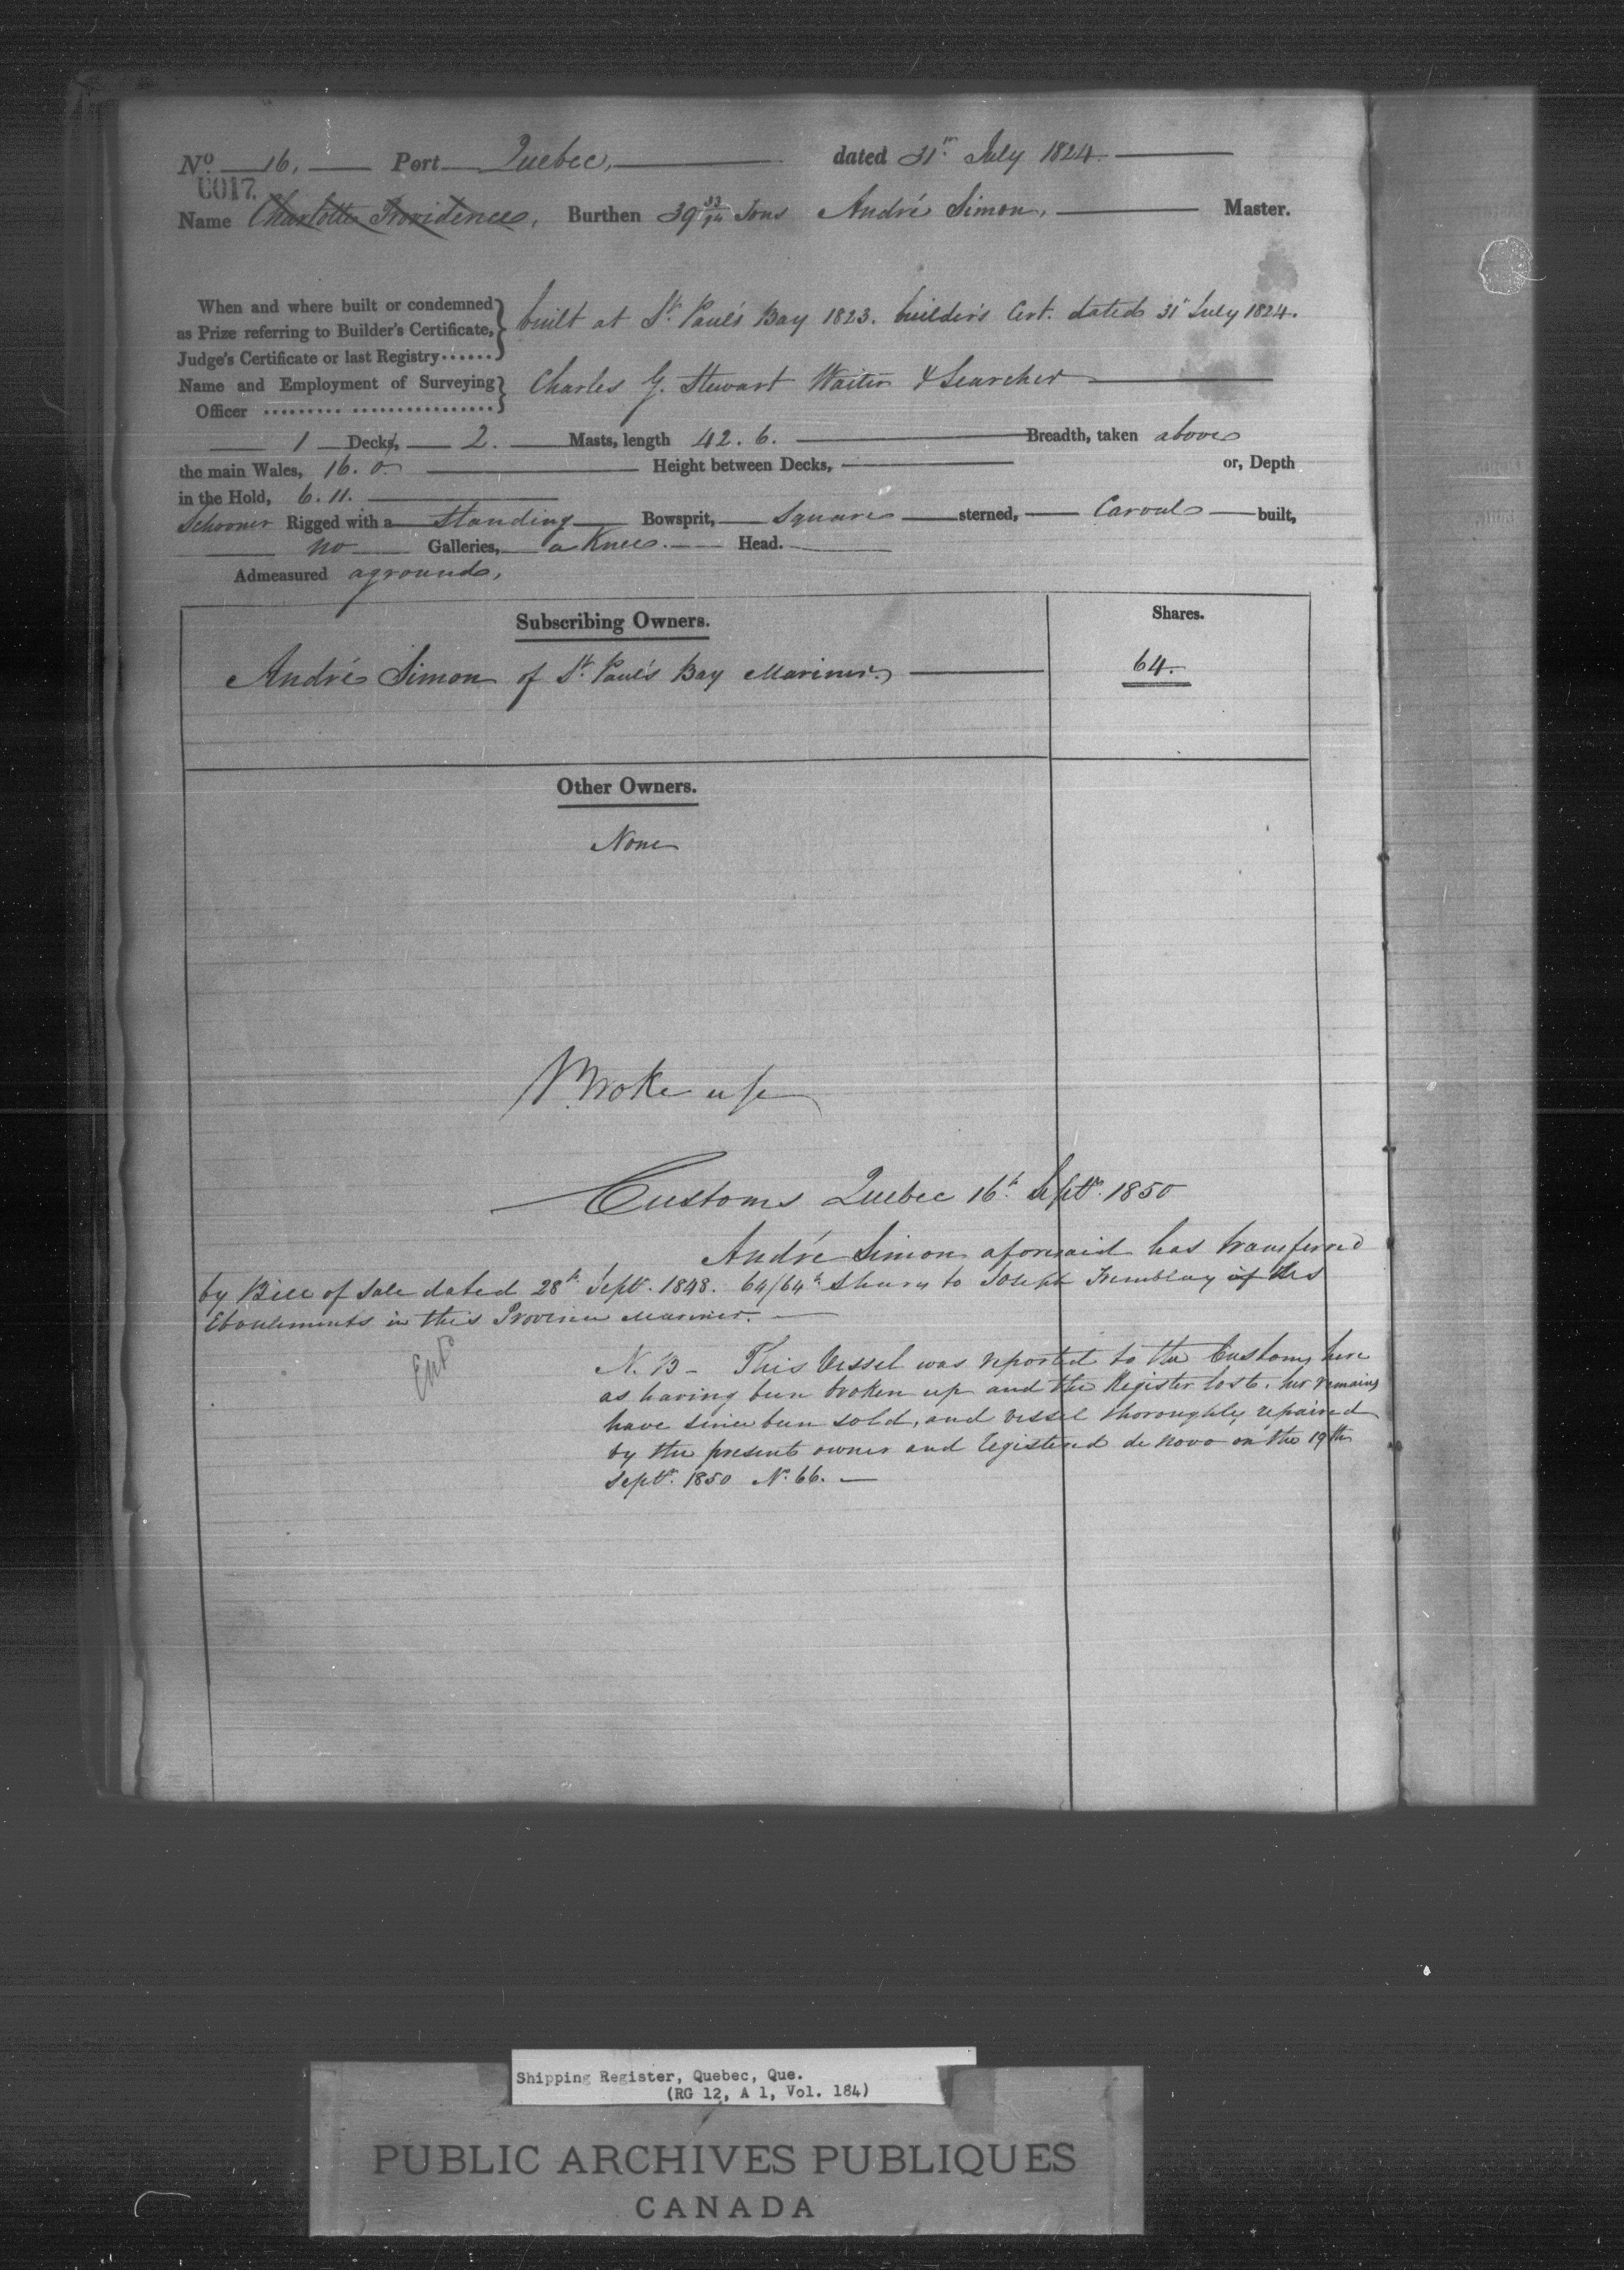 No. 16. Port Quebec, dated 31st July 1824.
0017.
Name Charlotte Providence, Burthen 39 33/94 Tons André Simon, Master.
When and where built or condemned
as Prize referring to Builder's Certificate,
Judge's Certificate or last Registry......
built at St. Paul's Bay 1823. builder's Cert. dated 31st July 1824.
Name and Employment of Surveying
Officer ......... ................
Charles G. Stewart Waiter & Searcher
1 Decks, 2. Masts, length 42. 6. Breadth, taken above
the main Wales, 16. 0. Height between Decks, or, Depth
in the Hold, 6. 11.
Schooner Rigged with a Standing Bowsprit, Square sterned, Carvel built,
no Galleries, a Knee. Head.
Admeasured aground,
Subscribing Owners. Shares.
André Simon of St. Paul's Bay Mariner. 64.
Other Owners.
None
Broke up
Customs Quebec 16th Septr. 1850
André Simon aforesaid has transferred
by Bill of Sale dated 28th Septr. 1848. 64/64th Shares to Joseph Tremblay of Les
Eboulements in this Province Mariner.
Entd
N. B - This Vessel was reported to the Customs here
as having been broken up and the Register lost. her remains
have since been sold, and vessel thoroughly repaired
by the present owner and registered de novo on the 19th
Septr. 1850 No. 66.
Shipping Register, Quebec, Que.
(RG 12, A 1, Vol. 184)
PUBLIC ARCHIVES PUBLIQUES
CANADA